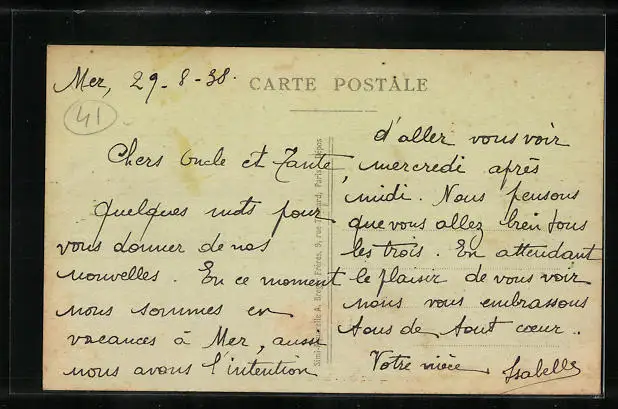 Mer, 29-8-38.
CARTE POSTALE
41
Chers Oncle et Tante,
Quelques mots pour
vous donner de nos
nouvelles. En ce moment
nous sommes en
vacances à Mer, aussi
nous avons l'intention
d'aller vous voir
mercredi après
midi. Nous pensons
que vous allez bien tous
les trois. En attendant
le plaisir de vous voir
nous vous embrassons
tous de tout cœur.
Votre nièce Isabelle
Frères, 9, rue